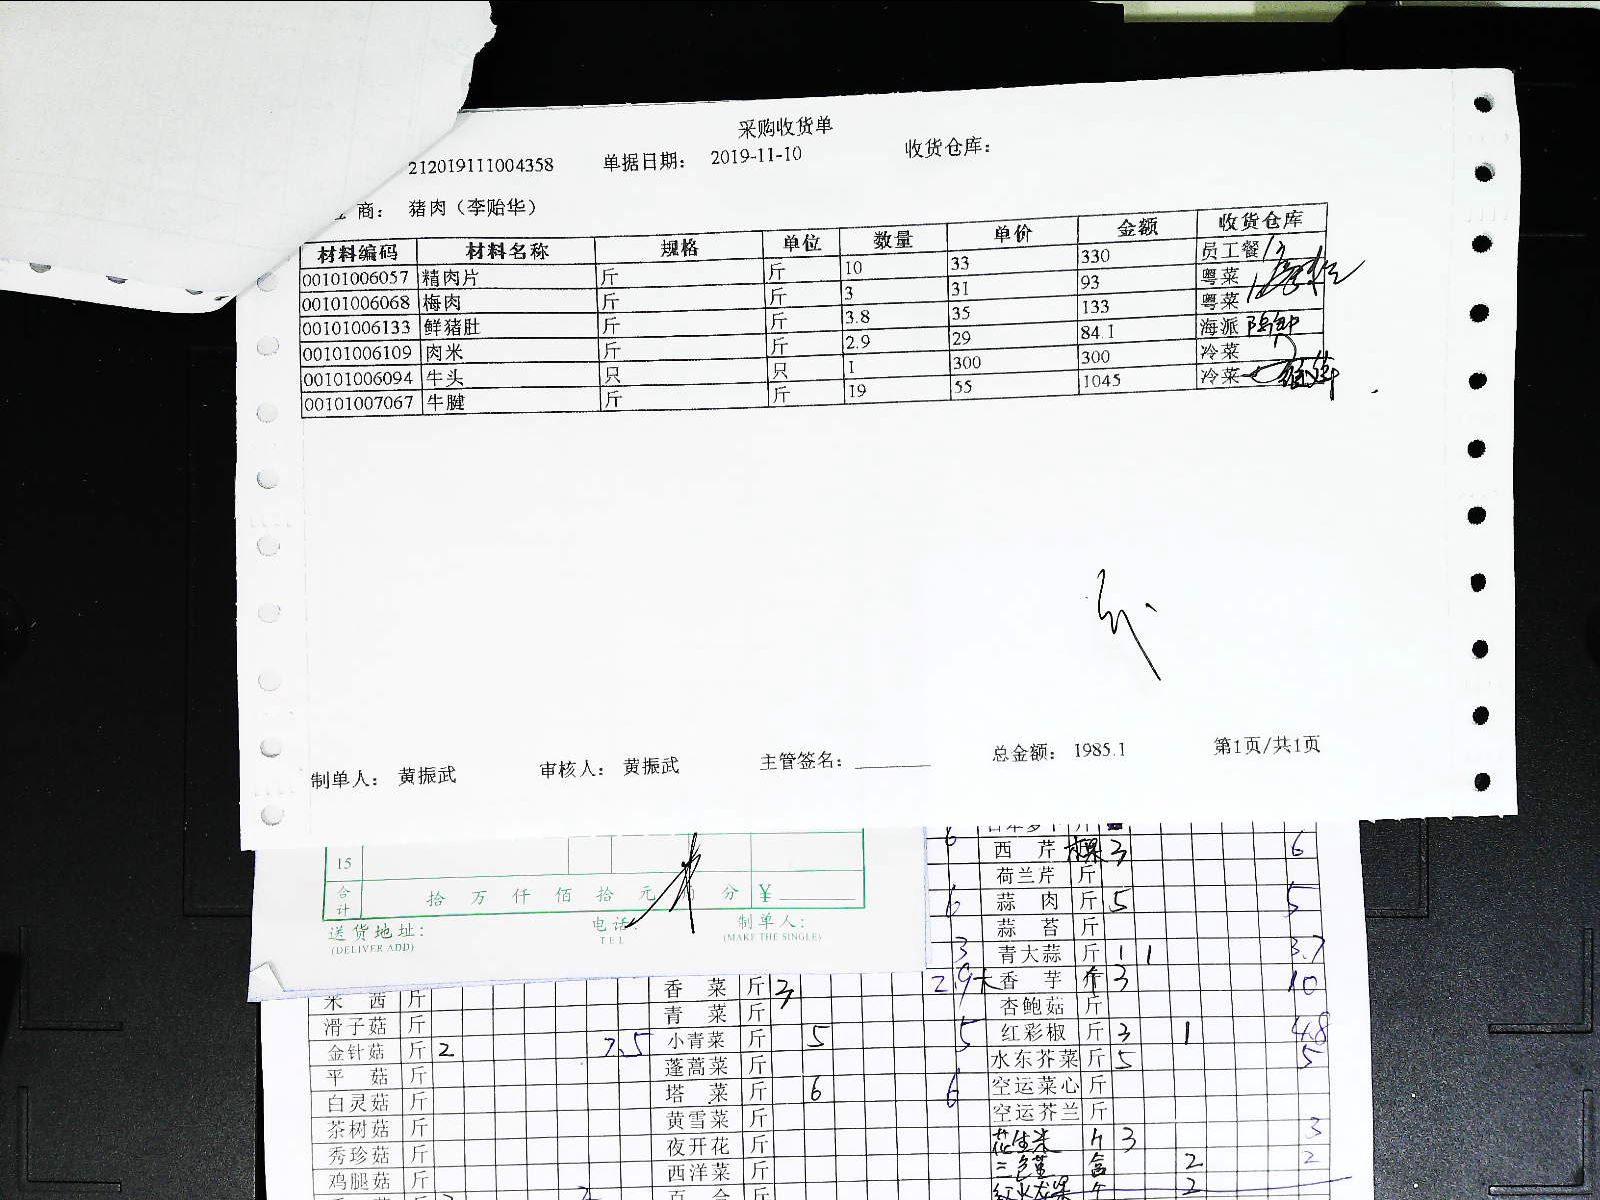 采购收货单
212019111004358 单据日期： 2019-11-10 收货仓库：
商： 猪肉（李贻华）
材料编码 材料名称 规格 单位 数量 单价 金额 收货仓库
00101006057 精肉片 斤 斤 10 33 330 员工餐
00101006068 梅肉 斤 斤 3 31 93 粤菜
00101006133 鲜猪肚 斤 斤 3.8 35 133 粤菜
00101006109 肉米 斤 斤 2.9 29 84.1 海派
00101006094 牛头 只 只 1 300 300 冷菜
00101007067 牛腱 斤 斤 19 55 1045 冷菜
制单人： 黄振武 审核人： 黄振武 主管签名： 总金额： 1985.1 第1页/共1页
15
合计 拾 万 仟 佰 拾 元 分 ¥
送货地址： 电话： 制单人：
(DELIVER ADD) TEL (MAKE THE SINGLE)
6 西芹 棵 3 6
荷兰芹 斤
6 蒜肉 斤 5 5
蒜苔 斤
3 青大蒜 斤 1 1 3.7
香菜 斤 3 2.9 香芋 斤 3 10
青菜 斤 杏鲍菇 斤
滑子菇 斤 小青菜 斤 5 5 红彩椒 斤 3 1 4.8
金针菇 斤 2 7.5 蓬蒿菜 斤 水东芥菜 斤 5 5
平菇 斤 塔菜 斤 6 6 空运菜心 斤
白灵菇 斤 黄雪菜 斤 空运芥兰 斤
茶树菇 斤 夜开花 斤 花生米 斤 3 3
秀珍菇 斤 西洋菜 斤 三色堇 盒 2 2
鸡腿菇 斤 百合 斤 红火龙果 2